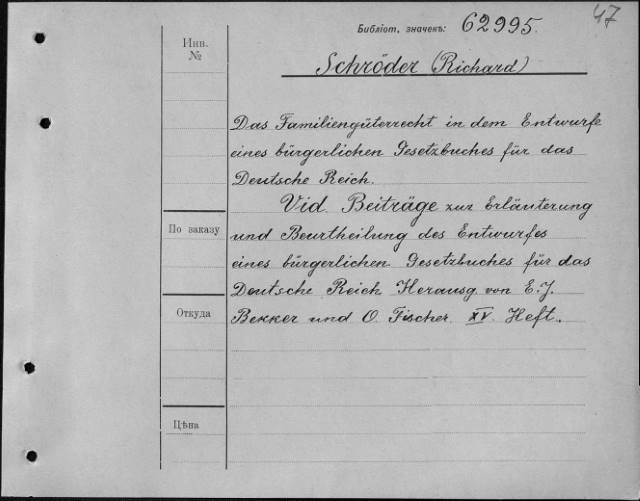 47
Библіот. значекъ: 62995.
Инв.
№
Schröder (Richard)
Das Familiengüterrecht in dem Entwurfe
eines bürgerlichen Gesetzbuches für das
Deutsche Reich.
Vid. Beiträge zur Erläuterung
По заказу
und Beurtheilung des Entwurfes
eines bürgerlichen Gesetzbuches für das
Deutsche Reich Herausg. von E. J.
Откуда
Bekker und O. Fischer. XV. Heft.
Цѣна